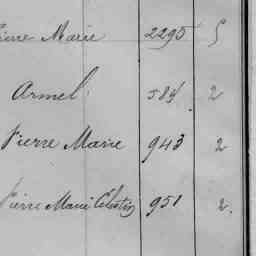 Pierre Marie 2295 5
Armel 584 2
Pierre Marie 943 2
Pierre Marie Célestin 951 2.